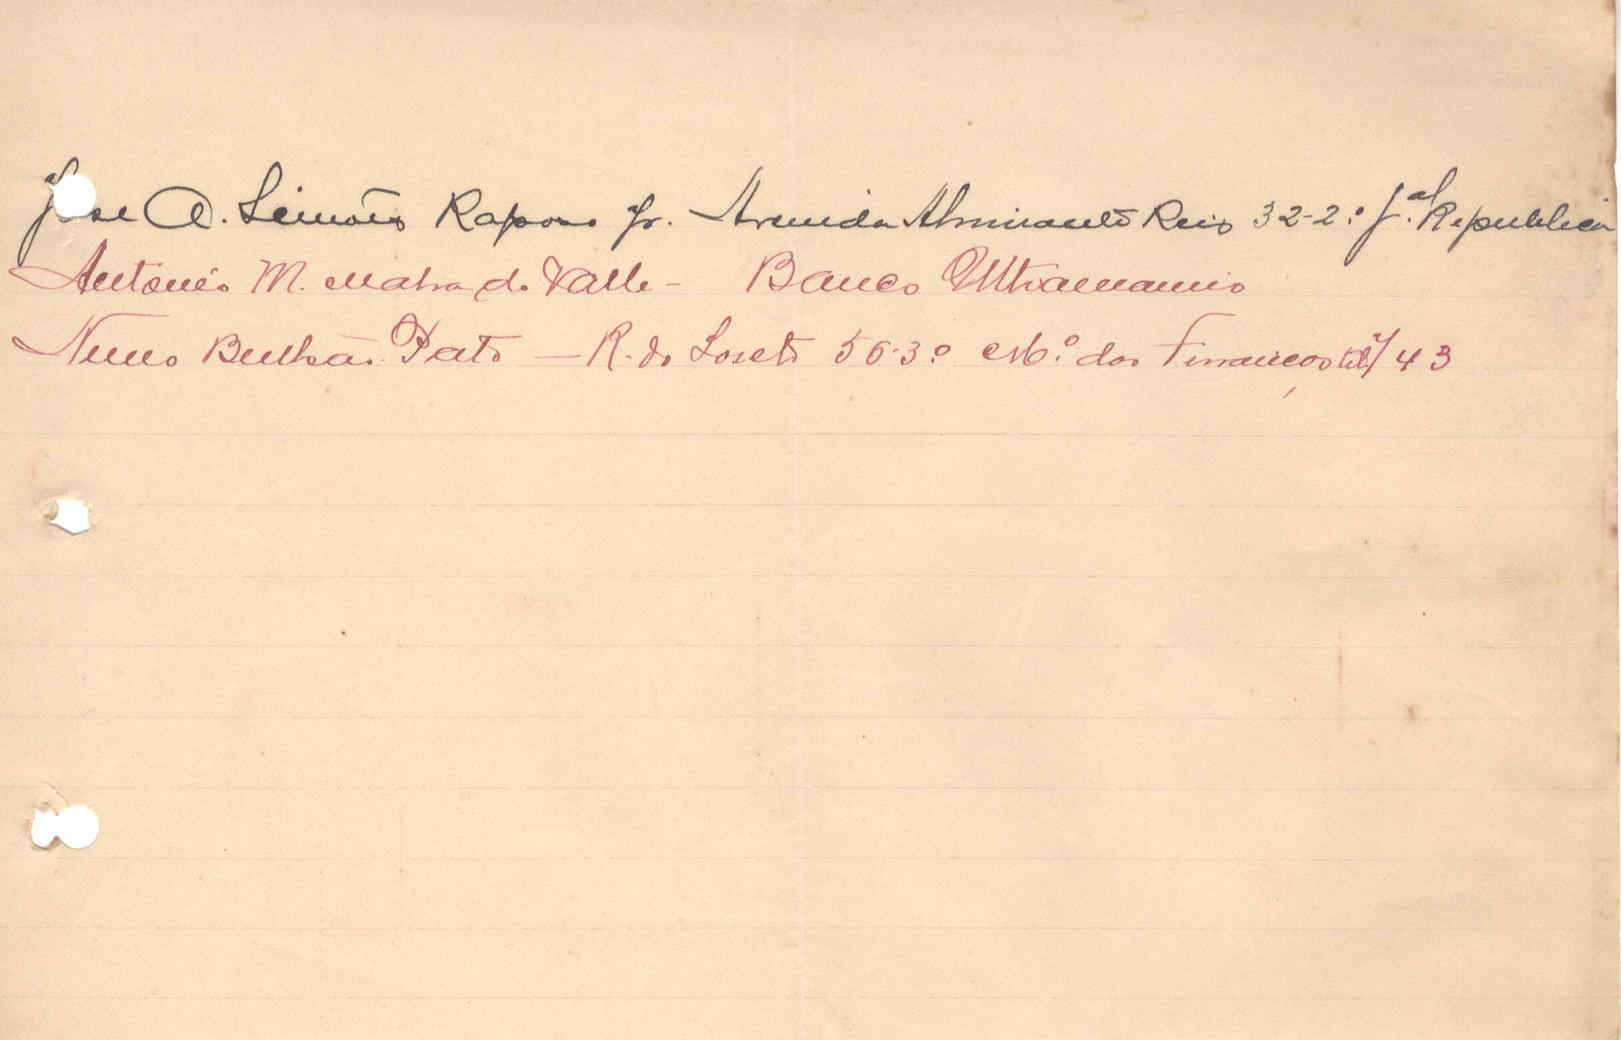 José A. Simões Raposo Jr. Avenida Almirante Reis 32-2.º J.al Republica
Antonio M. Matra do Valle - Banco Ultramarino
Nuno Bulhão Pato — R. do Loreto 56-3.º M.º das Finanças 43